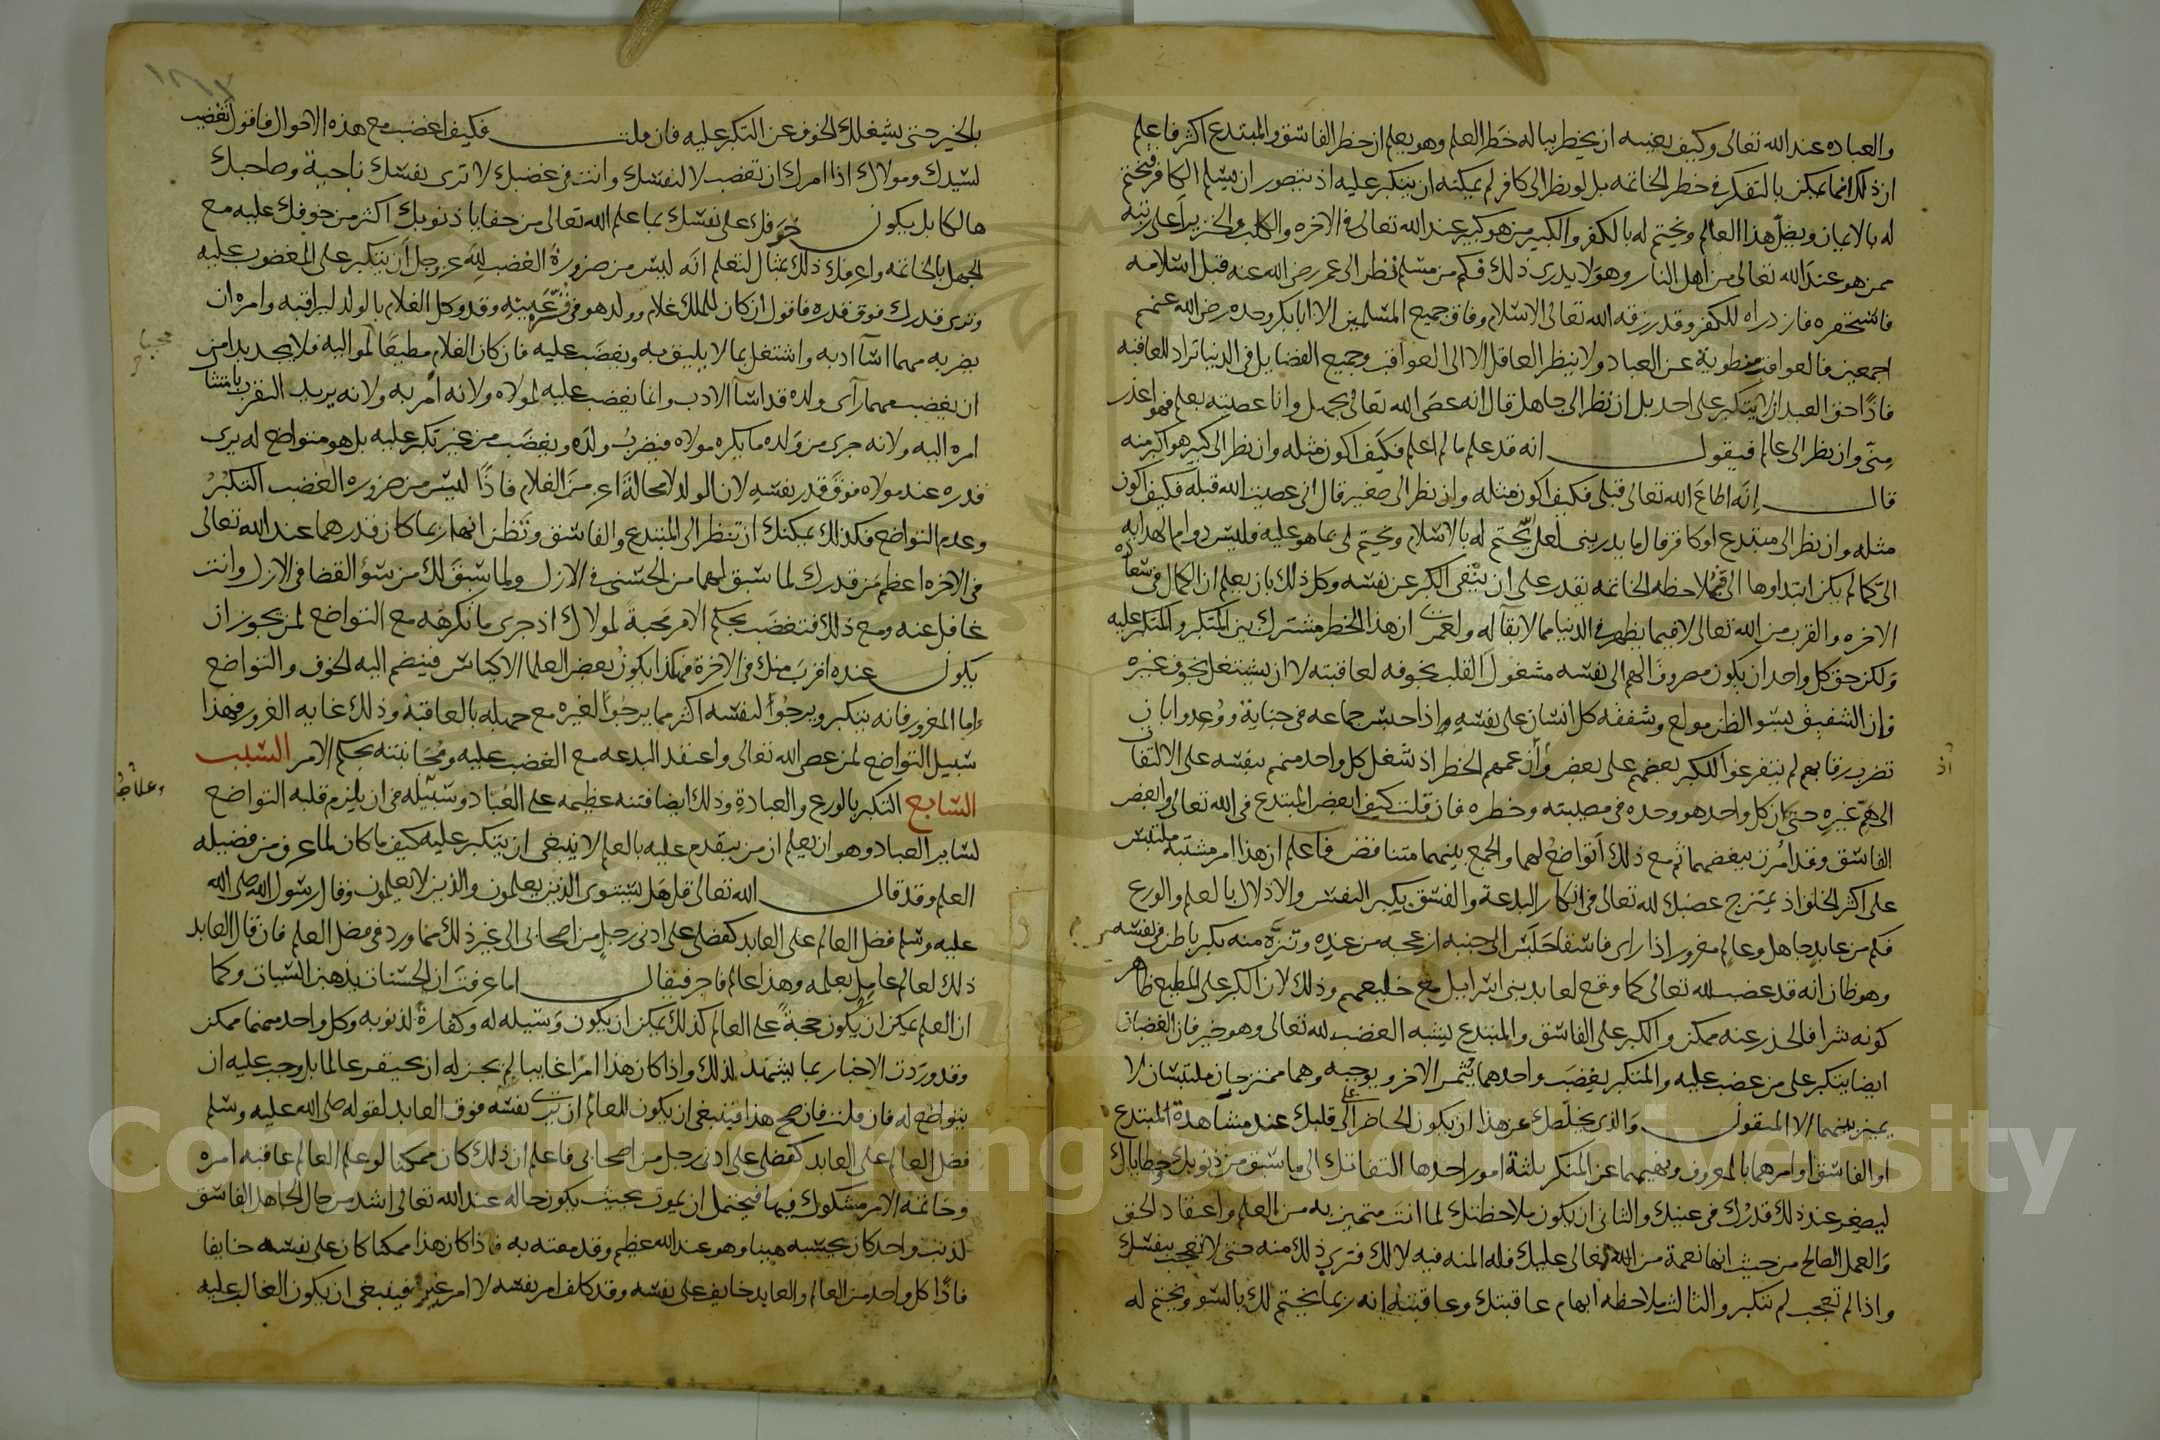 والعباده عند الله تعالى وكيف يغنيه ان يخطر بباله خطر العلم وهو يعلم ان خطر الفاسق والمبتدع اكثر فاعلم
ان ذلك انما يمكن بالتفكر في خطر الخاتمه بل لو نظر الى كافر لم يمكنه ان يتكبر عليه اذ يتصور ان يسلم الكافر فيختم
له بالايمان ويضل هذا العالم ويختم له بالكفر والكبير من هو كبير عند الله تعالى في الاخره والكلب والخنزير اعلى رتبه
ممن هو عند الله تعالى من اهل النار وهو لا يدرى ذلك فكم من مسلم نظر الى عمر رضي الله عنه قبل اسلامه
فاستحقره فازدراه للكفر وقد رزقه الله تعالى الاسلام وفاق جميع المسلمين الا ابا بكر وحده رضي الله عنهم
اجمعين فالعواقب مطوية عن العباد ولا ينظر العاقل الا الى العواقب وجميع الفضايل في الدنيا تراد للعاقبه
فاذا حق العبد ان لا يتكبر على احد بل ان نظر الى جاهل قال انه عصى الله تعالى بجهل وانا عصيته بعلم فهو اعذر
منى وان نظر الى عالم فيقول انه قد علم ما لم اعلم فكيف اكون مثله وان نظر الى كبير هو اكبر منه
قال انه اطاع الله تعالى قبلى فكيف اكون مثله وان نظر الى صغير قال انى عصيت الله قبله فكيف اكون
مثله وان نظر الى مبتدع او كافر قال ما يدرينى لعل يختم له بالاسلام ويختم لى بما هو عليه فليس دوام الهدايه
الى كما لم يكن ابتداوها الى فبملاحظه الخاتمه يقدر على ان ينفى الكبر عن نفسه وكل ذلك بان يعلم ان الكمال في سعاده
الاخره والقرب من الله تعالى لا فيما يظهر في الدنيا مما لا بقا له ولعمرى ان هذا الخطر مشترك بين المتكبر والمتكبر عليه
ولكن حق كل واحد ان يكون مصروف الهم الى نفسه مشغول القلب بخوفه لعاقبته لا ان يشتغل بخوف غيره
فان الشفيق بسو الظن مولع وشفقه كل انسان على نفسه واذا حبس جماعه في جناية ووعدوا بان
تضرب رقابهم لم يتفرغوا لتكبر بعضهم على بعض وان عمهم الخطر اذ شغل كل واحد منهم بنفسه على الالتفات
الى هم غيره حتى كان كل واحد هو وحده في مصيبته وخطره فان قلت كيف ابغض المبتدع في الله تعالى وابغض
الفاسق وقد امرت ببغضهما ثم مع ذلك اتواضع لهما والجمع بينهما متناقض فاعلم ان هذا امر مشتبه ملتبس
على اكثر الخلق اذ يمتزج غضبك لله تعالى في انكار البدعة والفسق بكبر النفس والادلال بالعلم والورع
فكم من عابد جاهل وعالم مغرور اذا راى فاسقا جلس الى جنبه ازعجه من عنده وتنزه منه بكبر باطن في نفسه
وهو ظان انه قد غضب لله تعالى كما وقع لعابد بنى اسرايل مع خليعهم وذلك لان الكبر على المطيع ظاهر
كونه شرا فالحذر عنه ممكن والكبر على الفاسق والمبتدع يشبه الغضب لله تعالى وهو خير فان الغضبان
ايضا يتكبر على من غضب عليه والمتكبر يغضب واحدهما يثمر الاخر ويوجبه وهما ممتزجان ملتبسان لا
يميز بينهما الا الموفقون والذى يخلصك عن هذا ان يكون الحاضر على قلبك عند مشاهدة المبتدع
او الفاسق او امرهما بالمعروف ونهيهما عن المنكر ثلثة امور احدها التفاتك الى ما سبق من ذنوبك وخطاياك
ليصغر عند ذلك قدرك في عينك والثانى ان يكون ملاحظتك لما انت متميز به من العلم واعتقاد الحق
والعمل الصالح من حيث انها نعمة من الله تعالى عليك فله المنه فيه لا لك فترى ذلك منه حتى لا تعجب بنفسك
واذا لم تعجب لم تتكبر والثالث ملاحظه ابهام عاقبتك وعاقبته انه ربما يختم لك بالسو ويختم له
بالخير حتى يشغلك الخوف عن التكبر عليه فان قلت فكيف اغضب مع هذه الاحوال فاقول تغضب
لسيدك ومولاك اذا امرك ان تغضب لا لنفسك وانت في غضبك لا ترى نفسك ناجية وصاحبك
هالكا بل يكون خوفك على نفسك بما علم الله تعالى من خفايا ذنوبك اكثر من خوفك عليه مع
الجهل بالخاتمه واعرفك ذلك بمثال لتعلم انه ليس من ضرورة الغضب لله عز وجل ان يتكبر على المغضوب عليه
وترى قدرك فوق قدره فاقول اذا كان للملك غلام وولد هو قرة عينه وقد وكل الغلام بالولد ليراقبه وامره ان
يضربه مهما اسآ ادبه واشتغل بما لا يليق به ويغضب عليه فان كان الغلام مطيعا لمواليه فلا يجد بدا من
ان يغضب مهما رآى ولده قد اسآ الادب وانما يغضب عليه لمولاه ولانه امر به ولانه يريد التقرب بامتثال
امره اليه ولانه جرى من ولده ما يكره مولاه فيضرب ولده ويغضب من غير تكبر عليه بل هو متواضع له يرى
قدره عند مولاه فوق قدر نفسه لان الولد لا محالة اعز من الغلام فاذا ليس من ضروره الغضب التكبر
وعدم التواضع فكذلك يمكنك ان تنظر الى المبتدع والفاسق وتظن انهما ربما كان قدرهما عند الله تعالى
في الاخره اعظم من قدرك لما سبق لهما من الحسنى في الازل ولما سبق لك من سؤ القضا في الازل وانت
غافل عنه ومع ذلك فتغضب بحكم الامر محبة لمولاك اذ جرى ما تكرهه مع التواضع لمن يجوز ان
يكون عنده اقرب منك في الاخرة فهكذا يكون بعض العلما الاكياس فينضم اليه الخوف والتواضع
واما المغرور فانه يتكبر ويرجوا لنفسه اكثر مما يرجوا لغيره مع جهله بالعاقبة وذلك غايه الغرور فهذا
سبيل التواضع لمن عصى الله تعالى واعتقد البدعه مع الغضب عليه ومجانبته بحكم الامر السبب
السابع التكبر بالورع والعبادة وذلك ايضا فتنه عظيمه على العباد وسبيله في ان يلزم قلبه التواضع
لساير العباد وهو ان يعلم ان من يتقدم عليه بالعلم لا ينبغى ان يتكبر عليه كيف ما كان لما عرف من فضيله
العلم وقد قال الله تعالى قل هل يستوى الذين يعلمون والذين لا يعلمون وقال رسول الله صلى الله
عليه وسلم فضل العالم على العابد كفضلى على ادنى رجل من اصحابى الى غير ذلك مما ورد في فضل العلم فان قال العابد
ذلك لعالم عامل بعلمه وهذا عالم فاجر فيقال اما عرفت ان الحسنات يذهبن السيات وكما
ان العلم يمكن ان يكون حجة على العالم كذلك يمكن ان يكون وسيله له وكفارة لذنوبه وكل واحد منهما ممكن
وقد وردت الاخبار بما يشهد لذلك واذا كان هذا امرا غايبا لم يجز له ان يحتقر عالما بل وجب عليه ان
يتواضع له فان قلت فان صح هذا فينبغى ان يكون للعالم ان يرى نفسه فوق العابد لقوله صلى الله عليه وسلم
فضل العالم على العابد كفضلى على ادنى رجل من اصحابى فاعلم ان ذلك كان ممكنا لو علم العالم عاقبه امره
وخاتمه الامر مشكوك فيها فيحتمل ان يموت بحيث يكون حاله عند الله تعالى اشد من حال الجاهل الفاسق
لذنب واحد كان يحسبه هينا وهو عند الله عظيم وقد مقته به فاذا كان هذا ممكنا كان على نفسه خايفا
فاذا كل واحد من العالم والعابد خايف على نفسه وقد كلف امر نفسه لا امر غيره فينبغى ان يكون الغالب عليه
Copyright © King Saud University